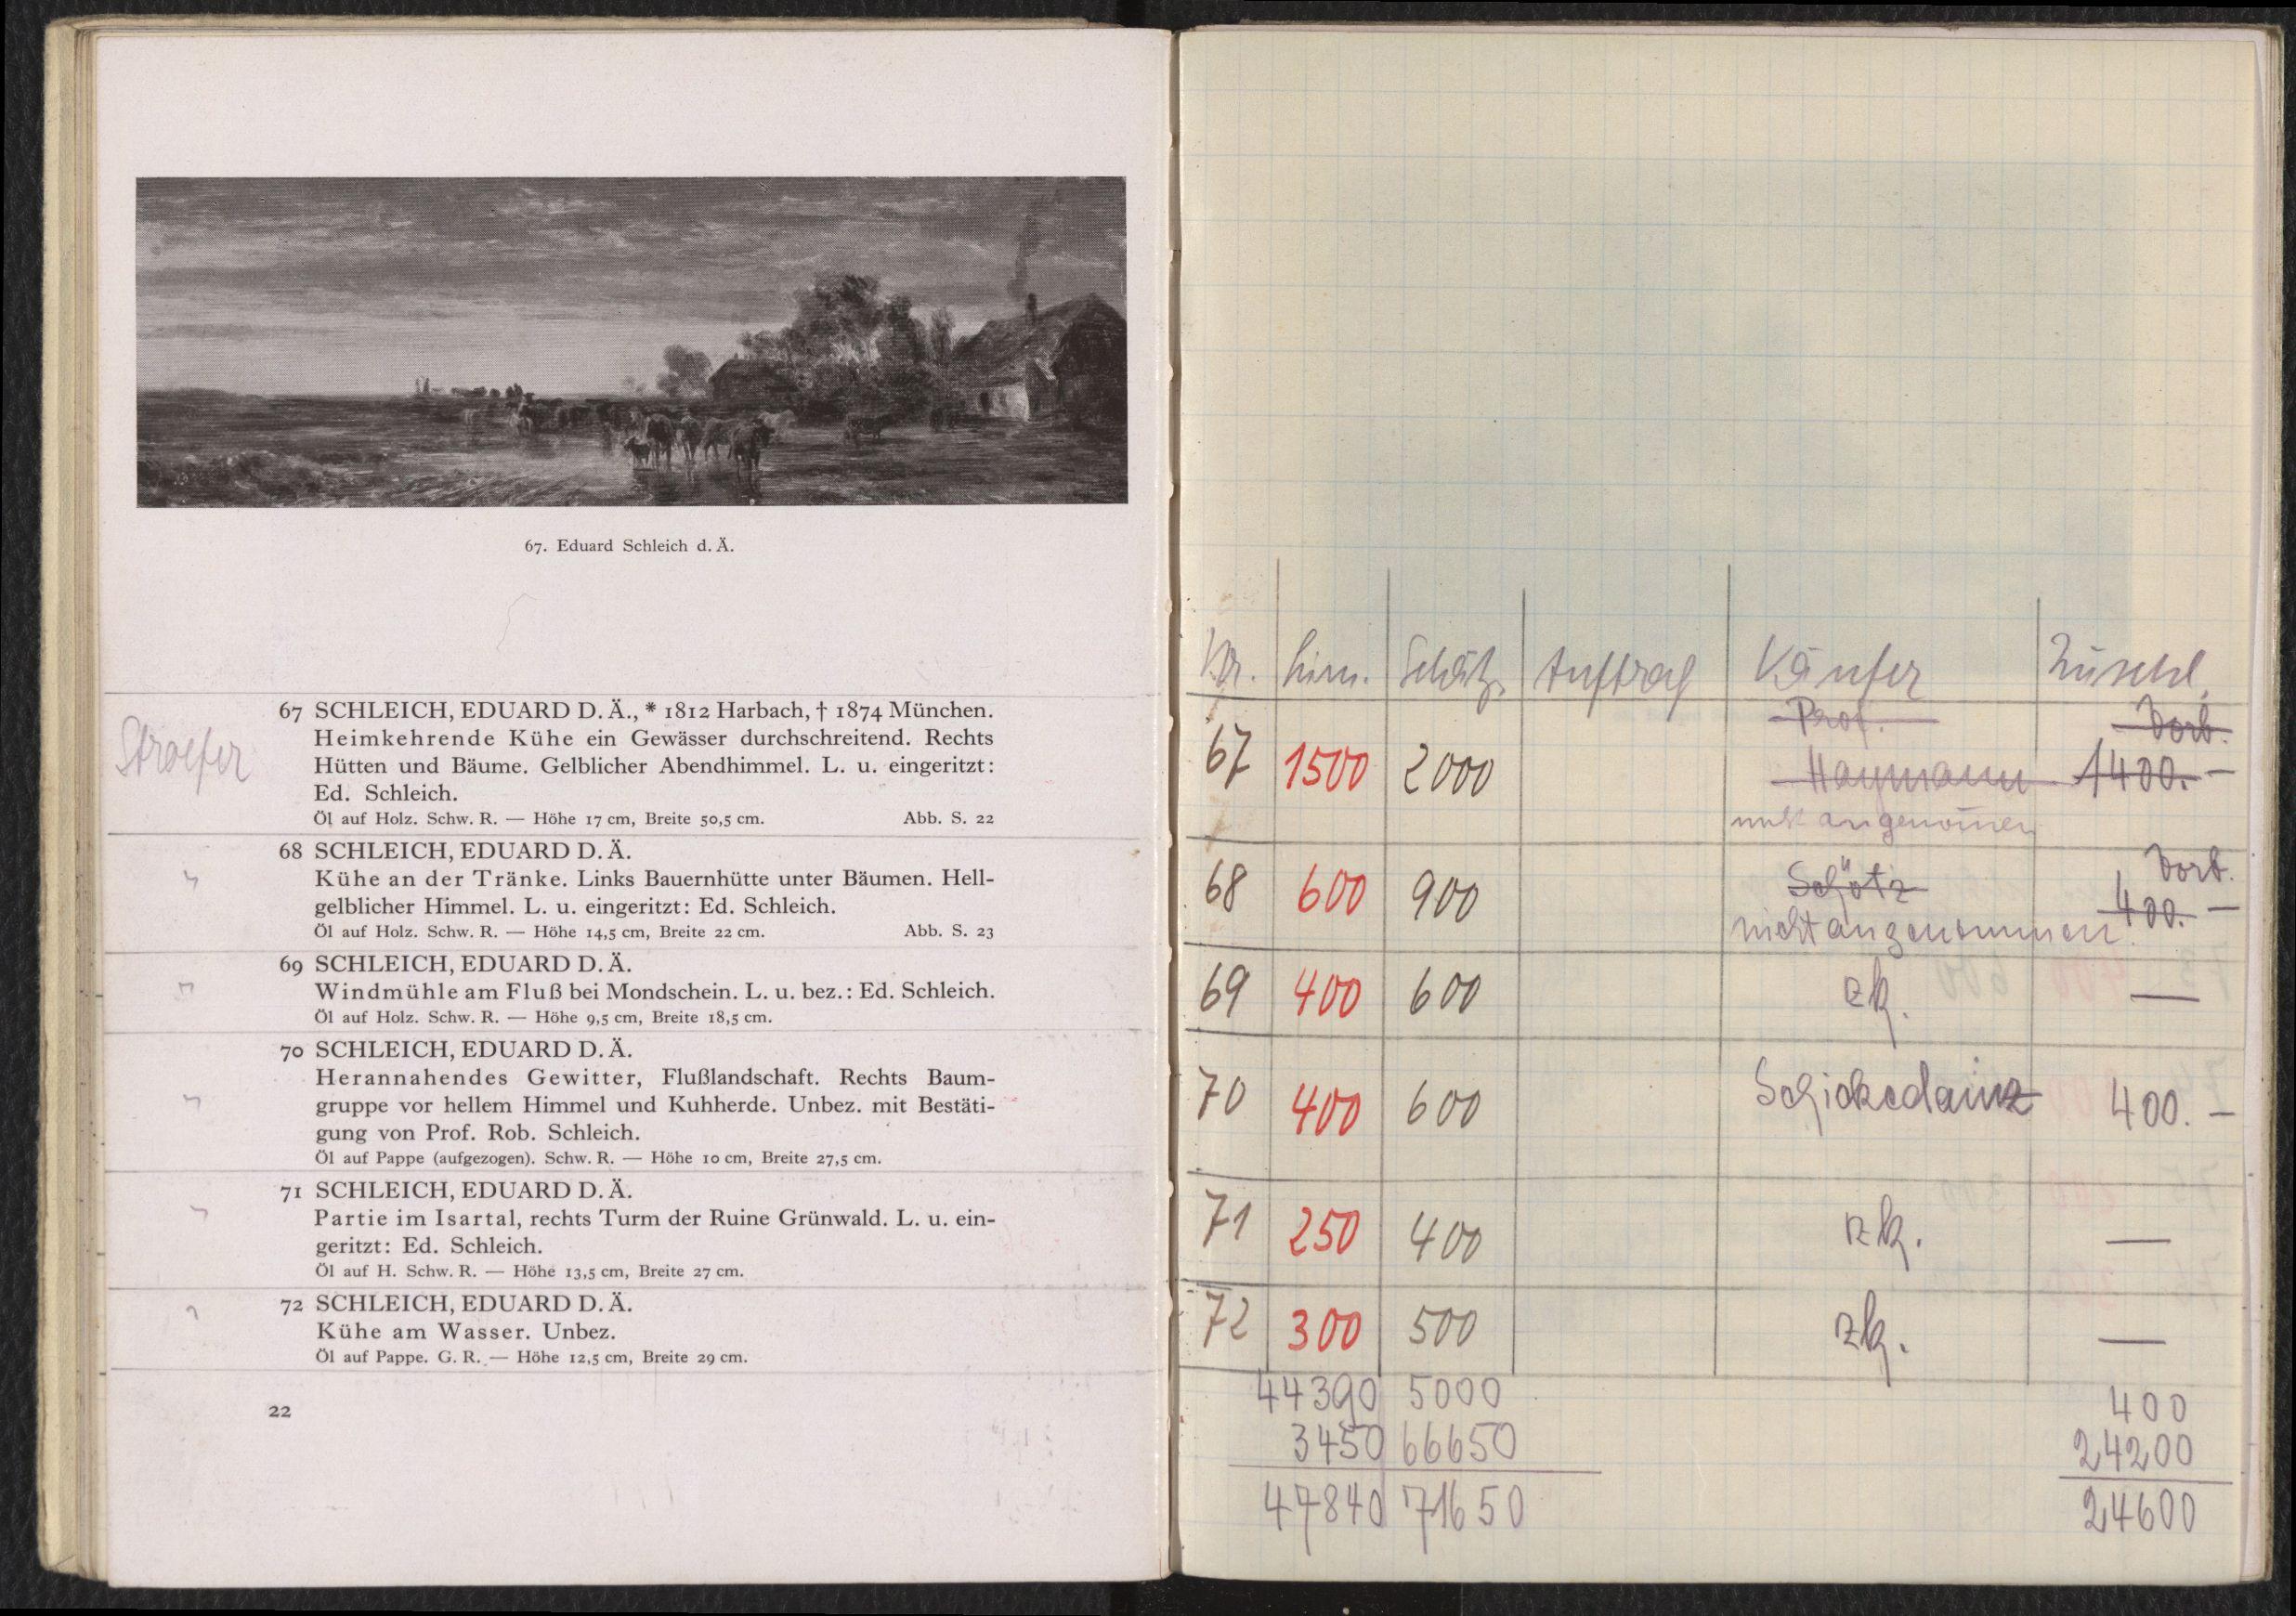 67. Eduard Schleich d. Ä.
Stroefer
67 SCHLEICH, EDUARD D. Ä., * 1812 Harbach, † 1874 München.
Heimkehrende Kühe ein Gewässer durchschreitend. Rechts
Hütten und Bäume. Gelblicher Abendhimmel. L. u. eingeritzt:
Ed. Schleich.
Öl auf Holz. Schw. R. — Höhe 17 cm, Breite 50,5 cm. Abb. S. 22
68 SCHLEICH, EDUARD D. Ä.
Kühe an der Tränke. Links Bauernhütte unter Bäumen. Hell-
gelblicher Himmel. L. u. eingeritzt: Ed. Schleich.
Öl auf Holz. Schw. R. — Höhe 14,5 cm, Breite 22 cm. Abb. S. 23
69 SCHLEICH, EDUARD D. Ä.
Windmühle am Fluß bei Mondschein. L. u. bez.: Ed. Schleich.
Öl auf Holz. Schw. R. — Höhe 9,5 cm, Breite 18,5 cm.
70 SCHLEICH, EDUARD D. Ä.
Herannahendes Gewitter, Flußlandschaft. Rechts Baum-
gruppe vor hellem Himmel und Kuhherde. Unbez. mit Bestäti-
gung von Prof. Rob. Schleich.
Öl auf Pappe (aufgezogen). Schw. R. — Höhe 10 cm, Breite 27,5 cm.
71 SCHLEICH, EDUARD D. Ä.
Partie im Isartal, rechts Turm der Ruine Grünwald. L. u. ein-
geritzt: Ed. Schleich.
Öl auf H. Schw. R. — Höhe 13,5 cm, Breite 27 cm.
72 SCHLEICH, EDUARD D. Ä.
Kühe am Wasser. Unbez.
Öl auf Pappe. G. R. — Höhe 12,5 cm, Breite 29 cm.
22
Nr. Lim. Schätz. Auftrag Käufer Zuschl.
Prof. Vorb.
67 1500 2000 Haymann 1400.—
nicht angenom̄en
68 600 900 Schötz Vorb. 400.—
nicht angenommen.
69 400 600 zk. —
70 400 600 Schickedanz 400.—
71 250 400 zk. —
72 300 500 zk. —
44390 5000 400
3450 66650 24200
47840 71650 24600